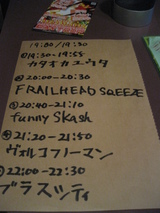 19:00/19:30
①19:30-19:55
カタオカユウタ
②20:00-20:30
FRAILHEAD SQEEZE
③20:40-21:10
funny skash
④21:20-21:50
ヴォルコフノーマン
⑤22:00-22:30
ブラスツティ